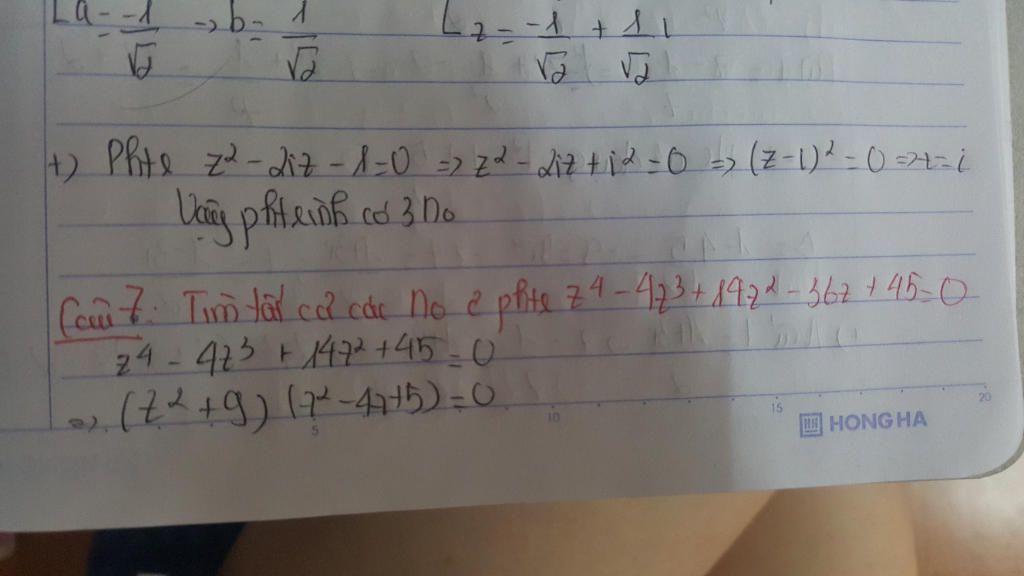 a = -1/√2 → b = 1/√2 [ z = -1/√2 + 1/√2 i
+) Phtr z² - 2iz - 1 = 0 => z² - 2iz + i² = 0 => (z - i)² = 0 => z = i
Vậy phtrình có 3 no
Câu 7: Tìm tất cả các no phtr z⁴ - 4z³ + 14z² - 36z + 45 = 0
z⁴ - 4z³ + 14z² + 45 = 0
=> (z² + 9) (z² - 4z + 5) = 0
5 10 15 20
HONG HA